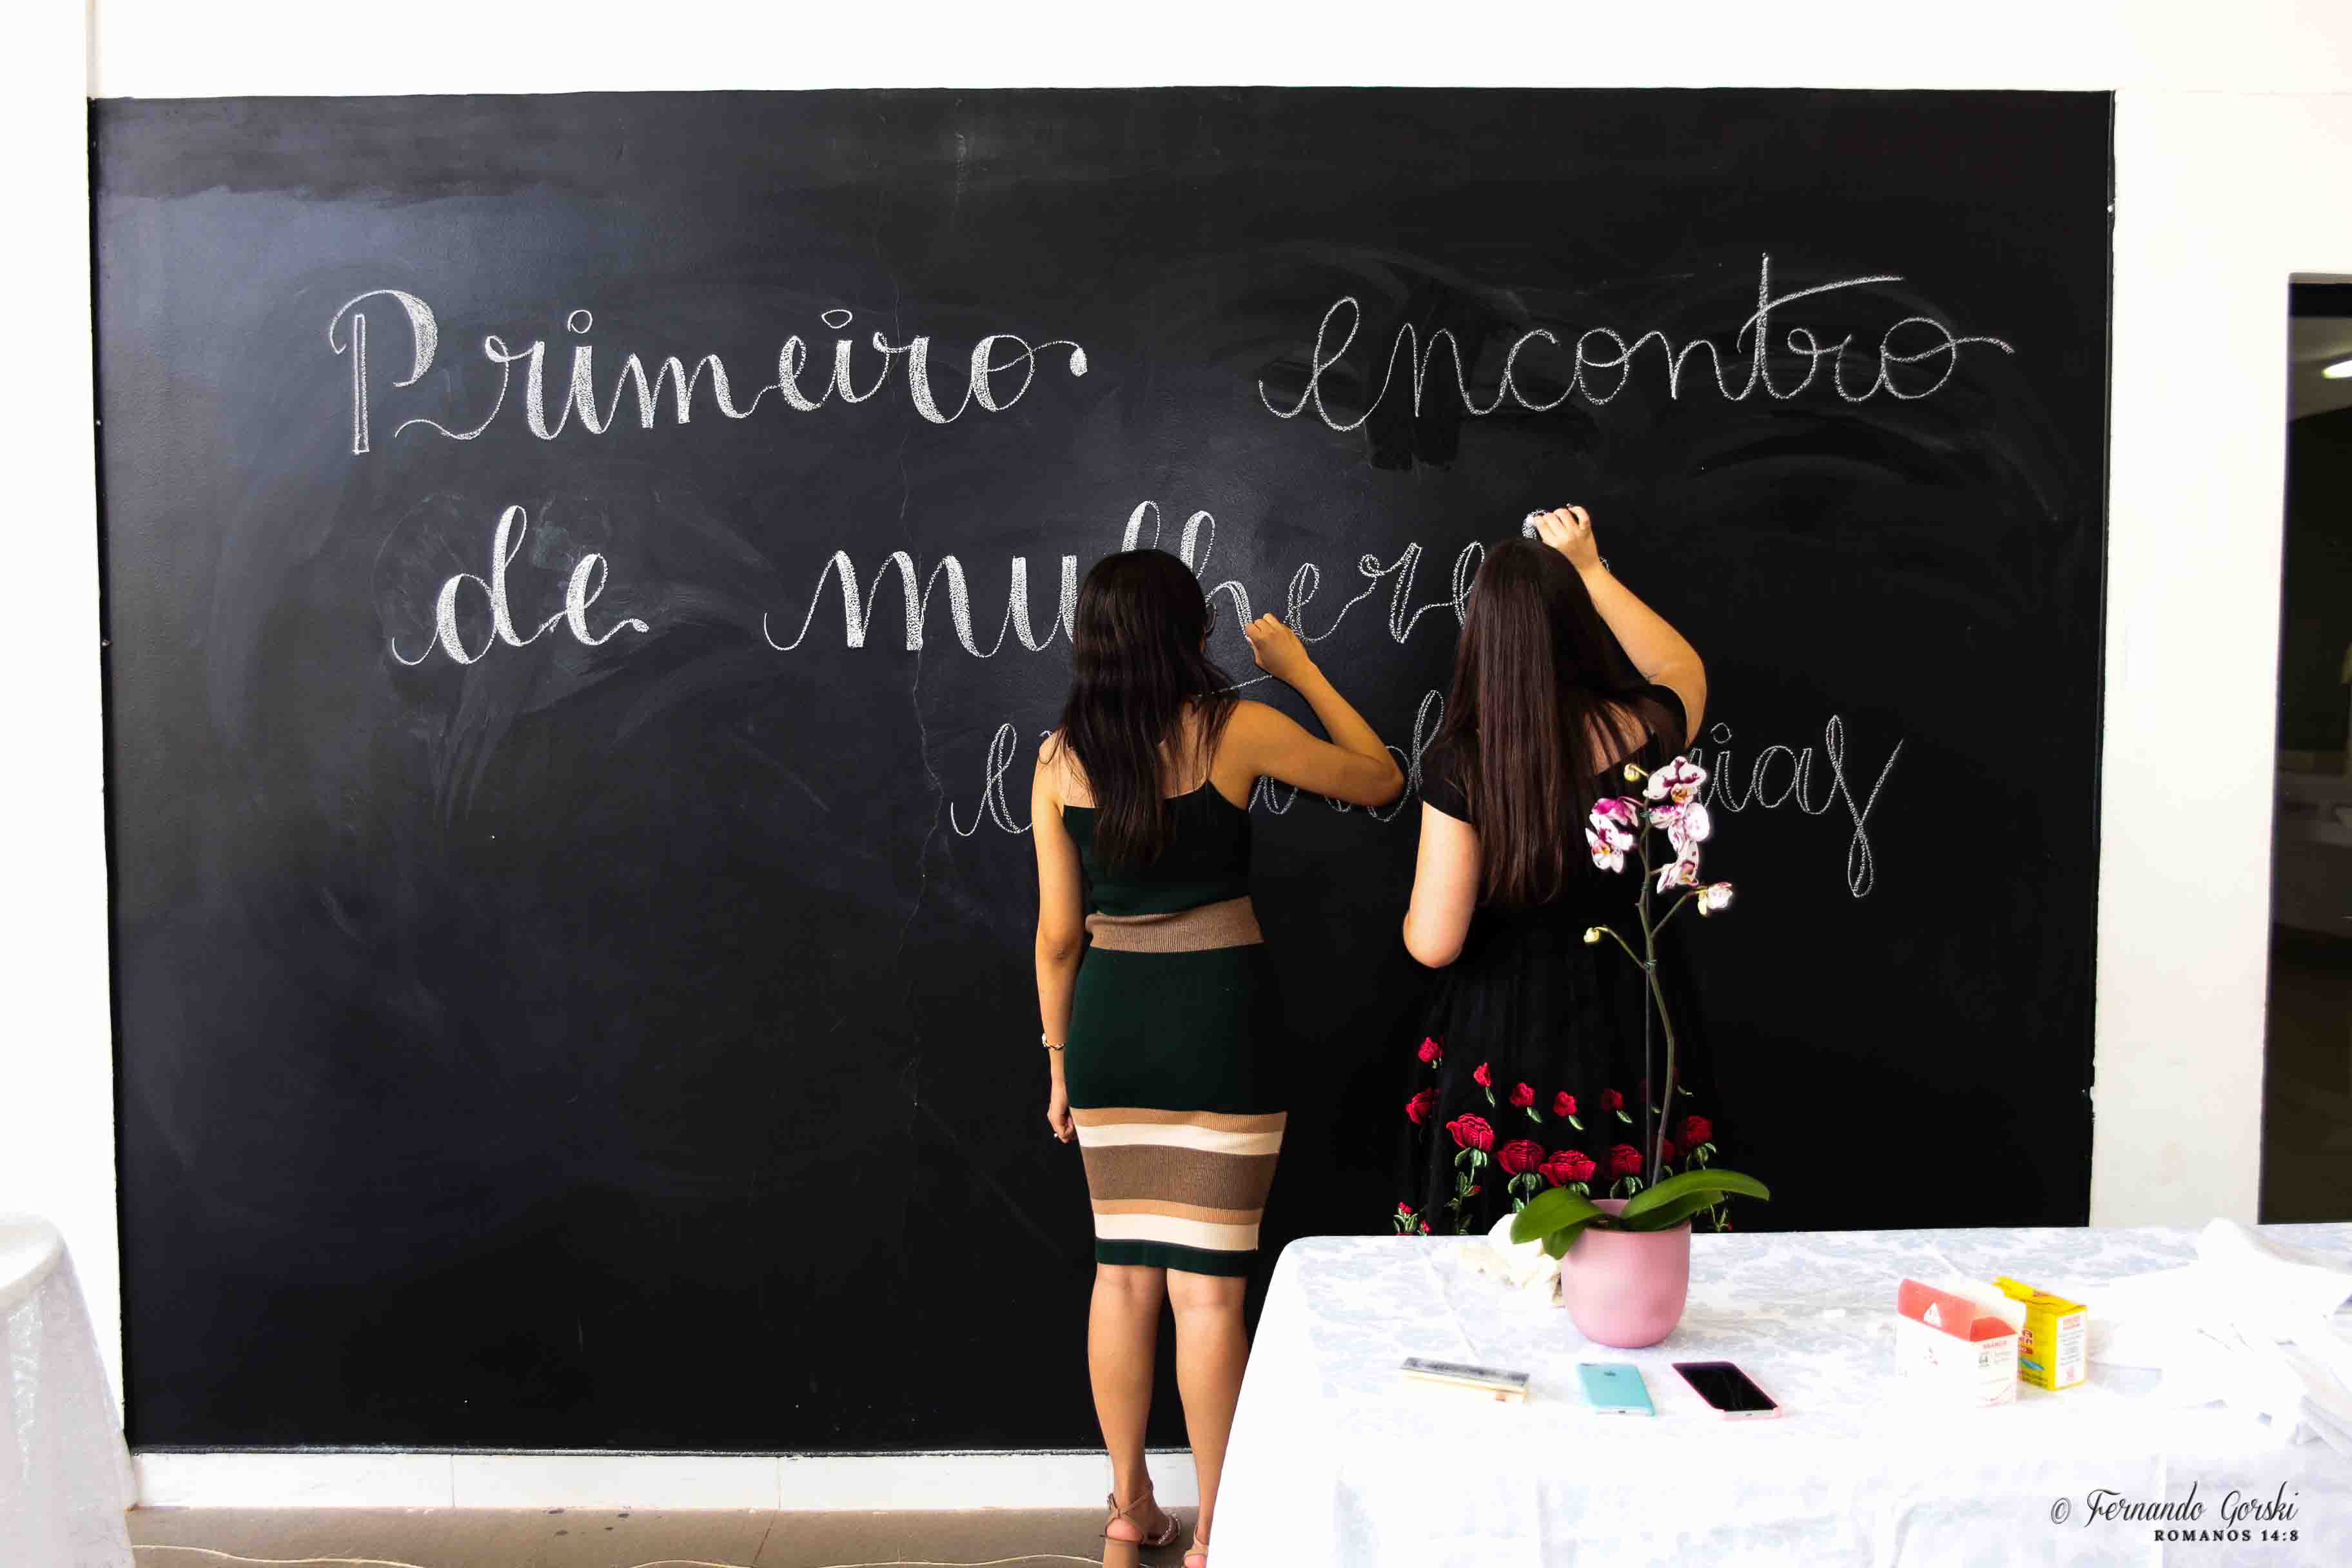 Primeiro encontro
de mulheres
© Fernando Gorski
ROMANOS 14:8